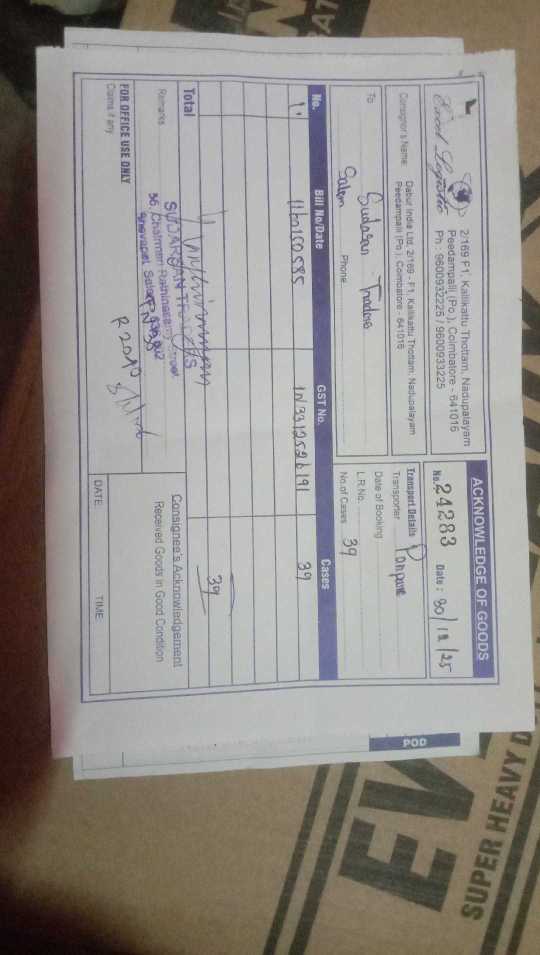 ACKNOWLEDGE OF GOODS
Excel Logistic
2/169 F1, Kallikattu Thottam, Nadupalayam
Peedampalli (Po.), Coimbatore - 641016
Ph : 9600932225 / 9600933225
No. 24283 Date : 30/12/25
Consignor's Name:
Dabur India Ltd, 2/169 - F1, Kallikattu Thottam, Nadupalayam
Peedampalli (Po.), Coimbatore - 641016
Transport Details
Transporter
Date of Booking
L.R.No.
No.of Cases 39
To Sudasan Traders
Salem Phone
No. Bill No/Date GST No. Cases
1. 1160150585 1N3312526191 39
Total 39
Remarks
SUDARSAN TRADERS
36, Chairman Rathinasamy Street
Consignee's Acknowledgement
Received Goods in Good Condition
FOR OFFICE USE ONLY
Claims if any
DATE TIME
POD
SUPER HEAVY D